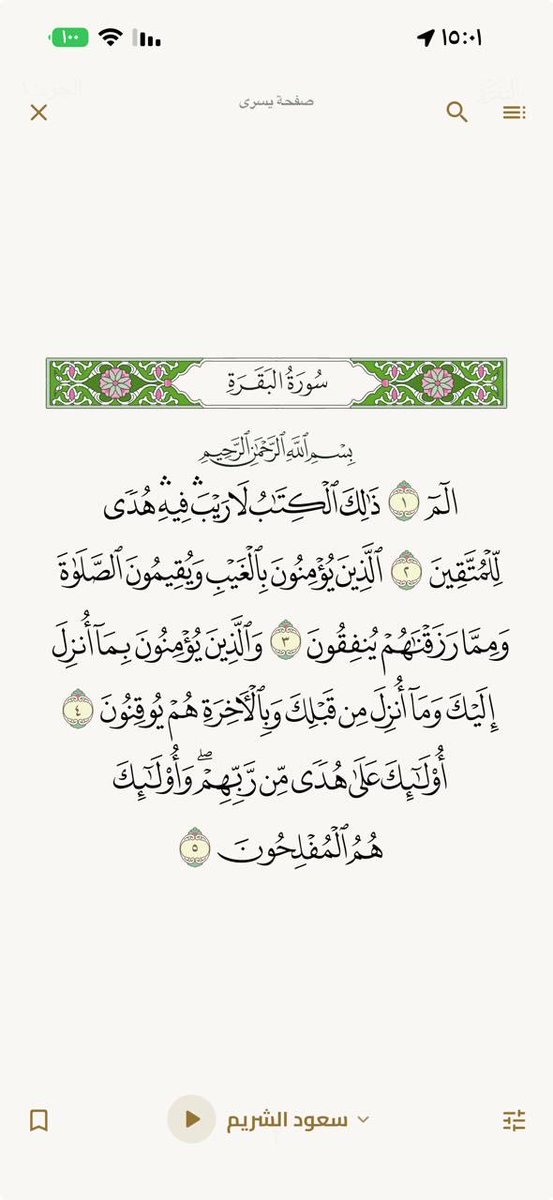 ١٠٠
١٥:٠١
صفحة يسرى
سُورَةُ البَقَرَةِ
بِسْمِ ٱللَّهِ ٱلرَّحْمَٰنِ ٱلرَّحِيمِ
الٓمٓ ١ ذَٰلِكَ ٱلْكِتَٰبُ لَا رَيْبَۛ فِيهِۛ هُدًى
لِّلْمُتَّقِينَ ٢ ٱلَّذِينَ يُؤْمِنُونَ بِٱلْغَيْبِ وَيُقِيمُونَ ٱلصَّلَوٰةَ
وَمِمَّا رَزَقْنَٰهُمْ يُنفِقُونَ ٣ وَٱلَّذِينَ يُؤْمِنُونَ بِمَآ أُنزِلَ
إِلَيْكَ وَمَآ أُنزِلَ مِن قَبْلِكَ وَبِٱلْأٓخِرَةِ هُمْ يُوقِنُونَ ٤
أُو۟لَٰٓئِكَ عَلَىٰ هُدًى مِّن رَّبِّهِمْۖ وَأُو۟لَٰٓئِكَ
هُمُ ٱلْمُفْلِحُونَ ٥
سعود الشريم